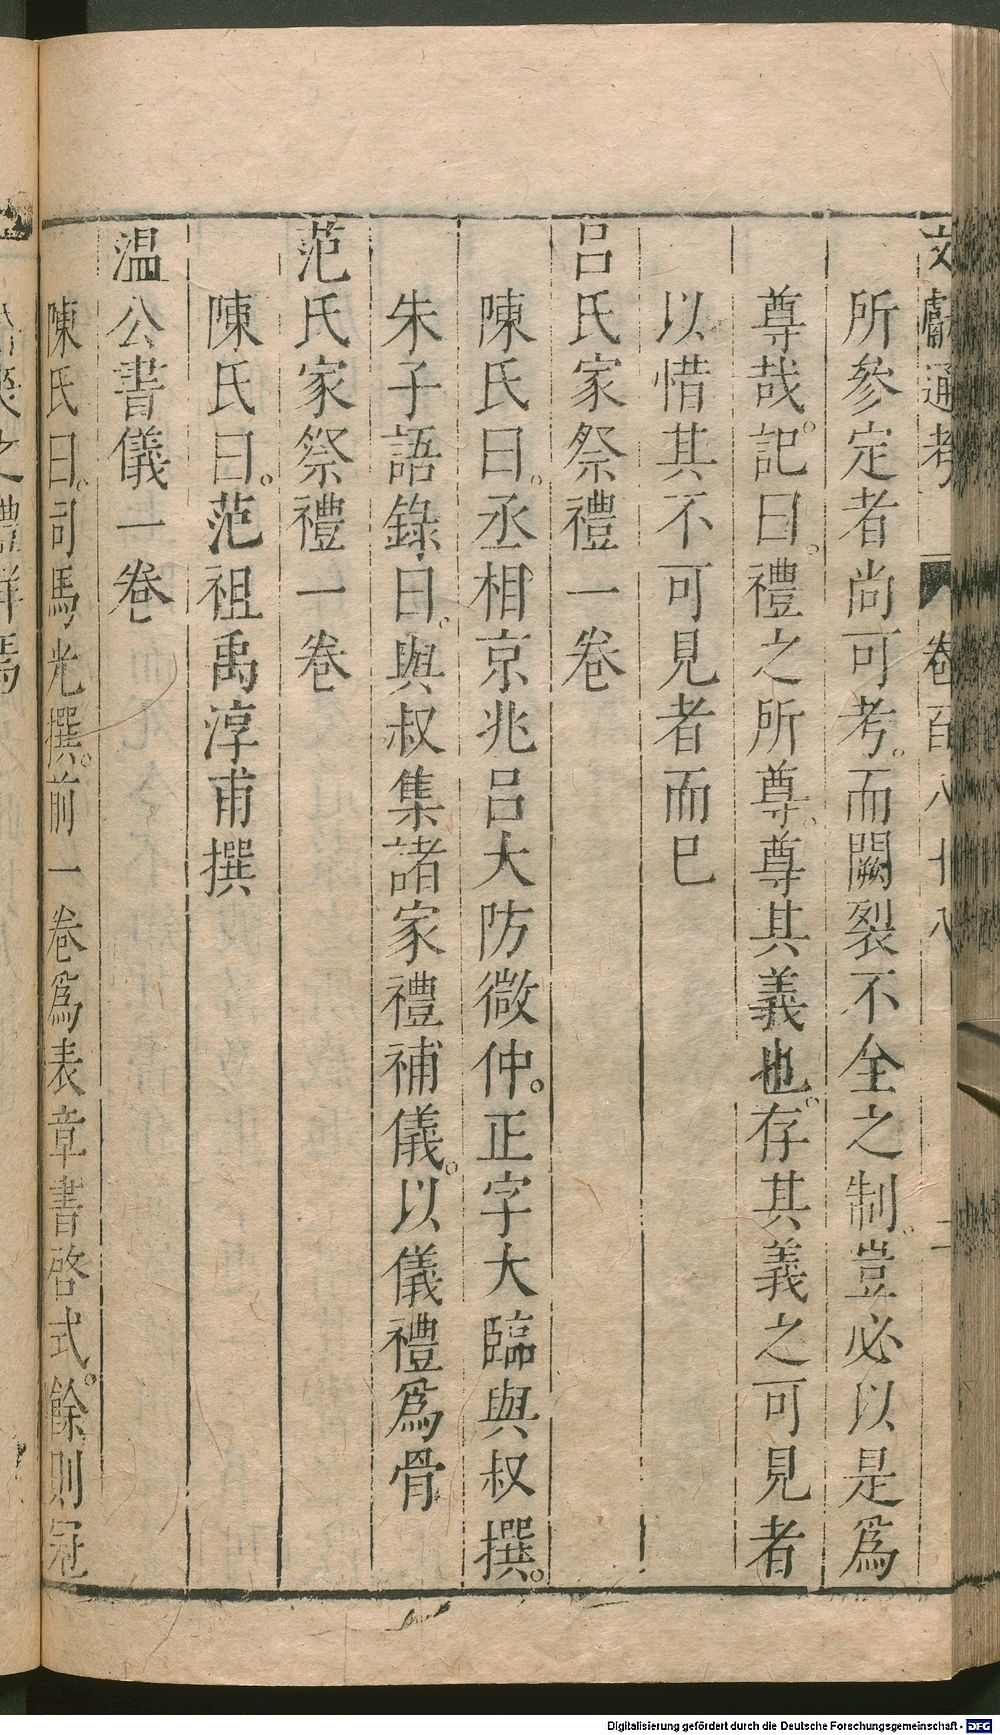 文獻通考 卷百八十八 二
所參定者尚可考。而闕裂不全之制。豈必以是爲
尊哉。記曰。禮之所尊。尊其義也。存其義之可見者
以惜其不可見者而已
呂氏家祭禮一卷
陳氏曰。丞相京兆呂大防微仲。正字大臨與叔撰。
朱子語錄曰。與叔集諸家禮補儀。以儀禮爲骨
范氏家祭禮一卷
陳氏曰。范祖禹淳甫撰
溫公書儀一卷
陳氏曰。司馬光撰。前一卷爲表章書啓式。餘則冠
之禮詳焉
Digitalisierung gefördert durch die Deutsche Forschungsgemeinschaft - DFG